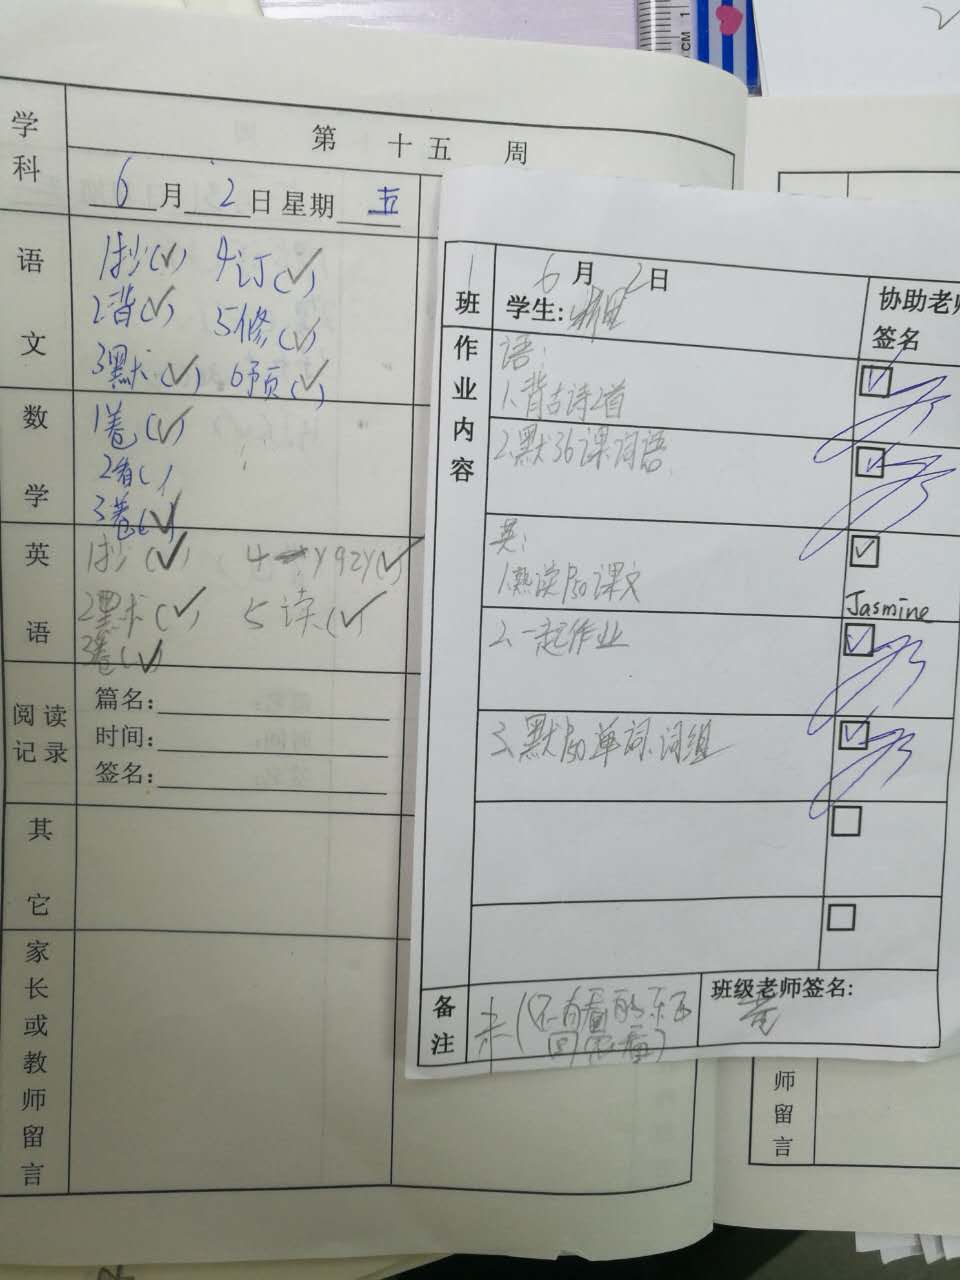 CM 1
学科
第 十五 周
6月2日 星期五
语文
1抄(✓) 4订(✓)
2背(✓) 5修(✓)
3默(✓) 6预(✓)
数学
1卷(✓)
2看( )
3卷(✓)
英语
1抄(✓) 4 yqzy(✓)
2默(✓) 5读(✓)
3卷(✓)
阅读记录
篇名:
时间:
签名:
其它
家长或教师留言
1班
6月2日
学生:
协助老师签名
作业内容
语:
1.背古诗2首
2.默36课词语
英:
1.熟读P50课文
Jasmine
2.一起作业
3.默P50单词、词组
备注
班级老师签名:
师留言